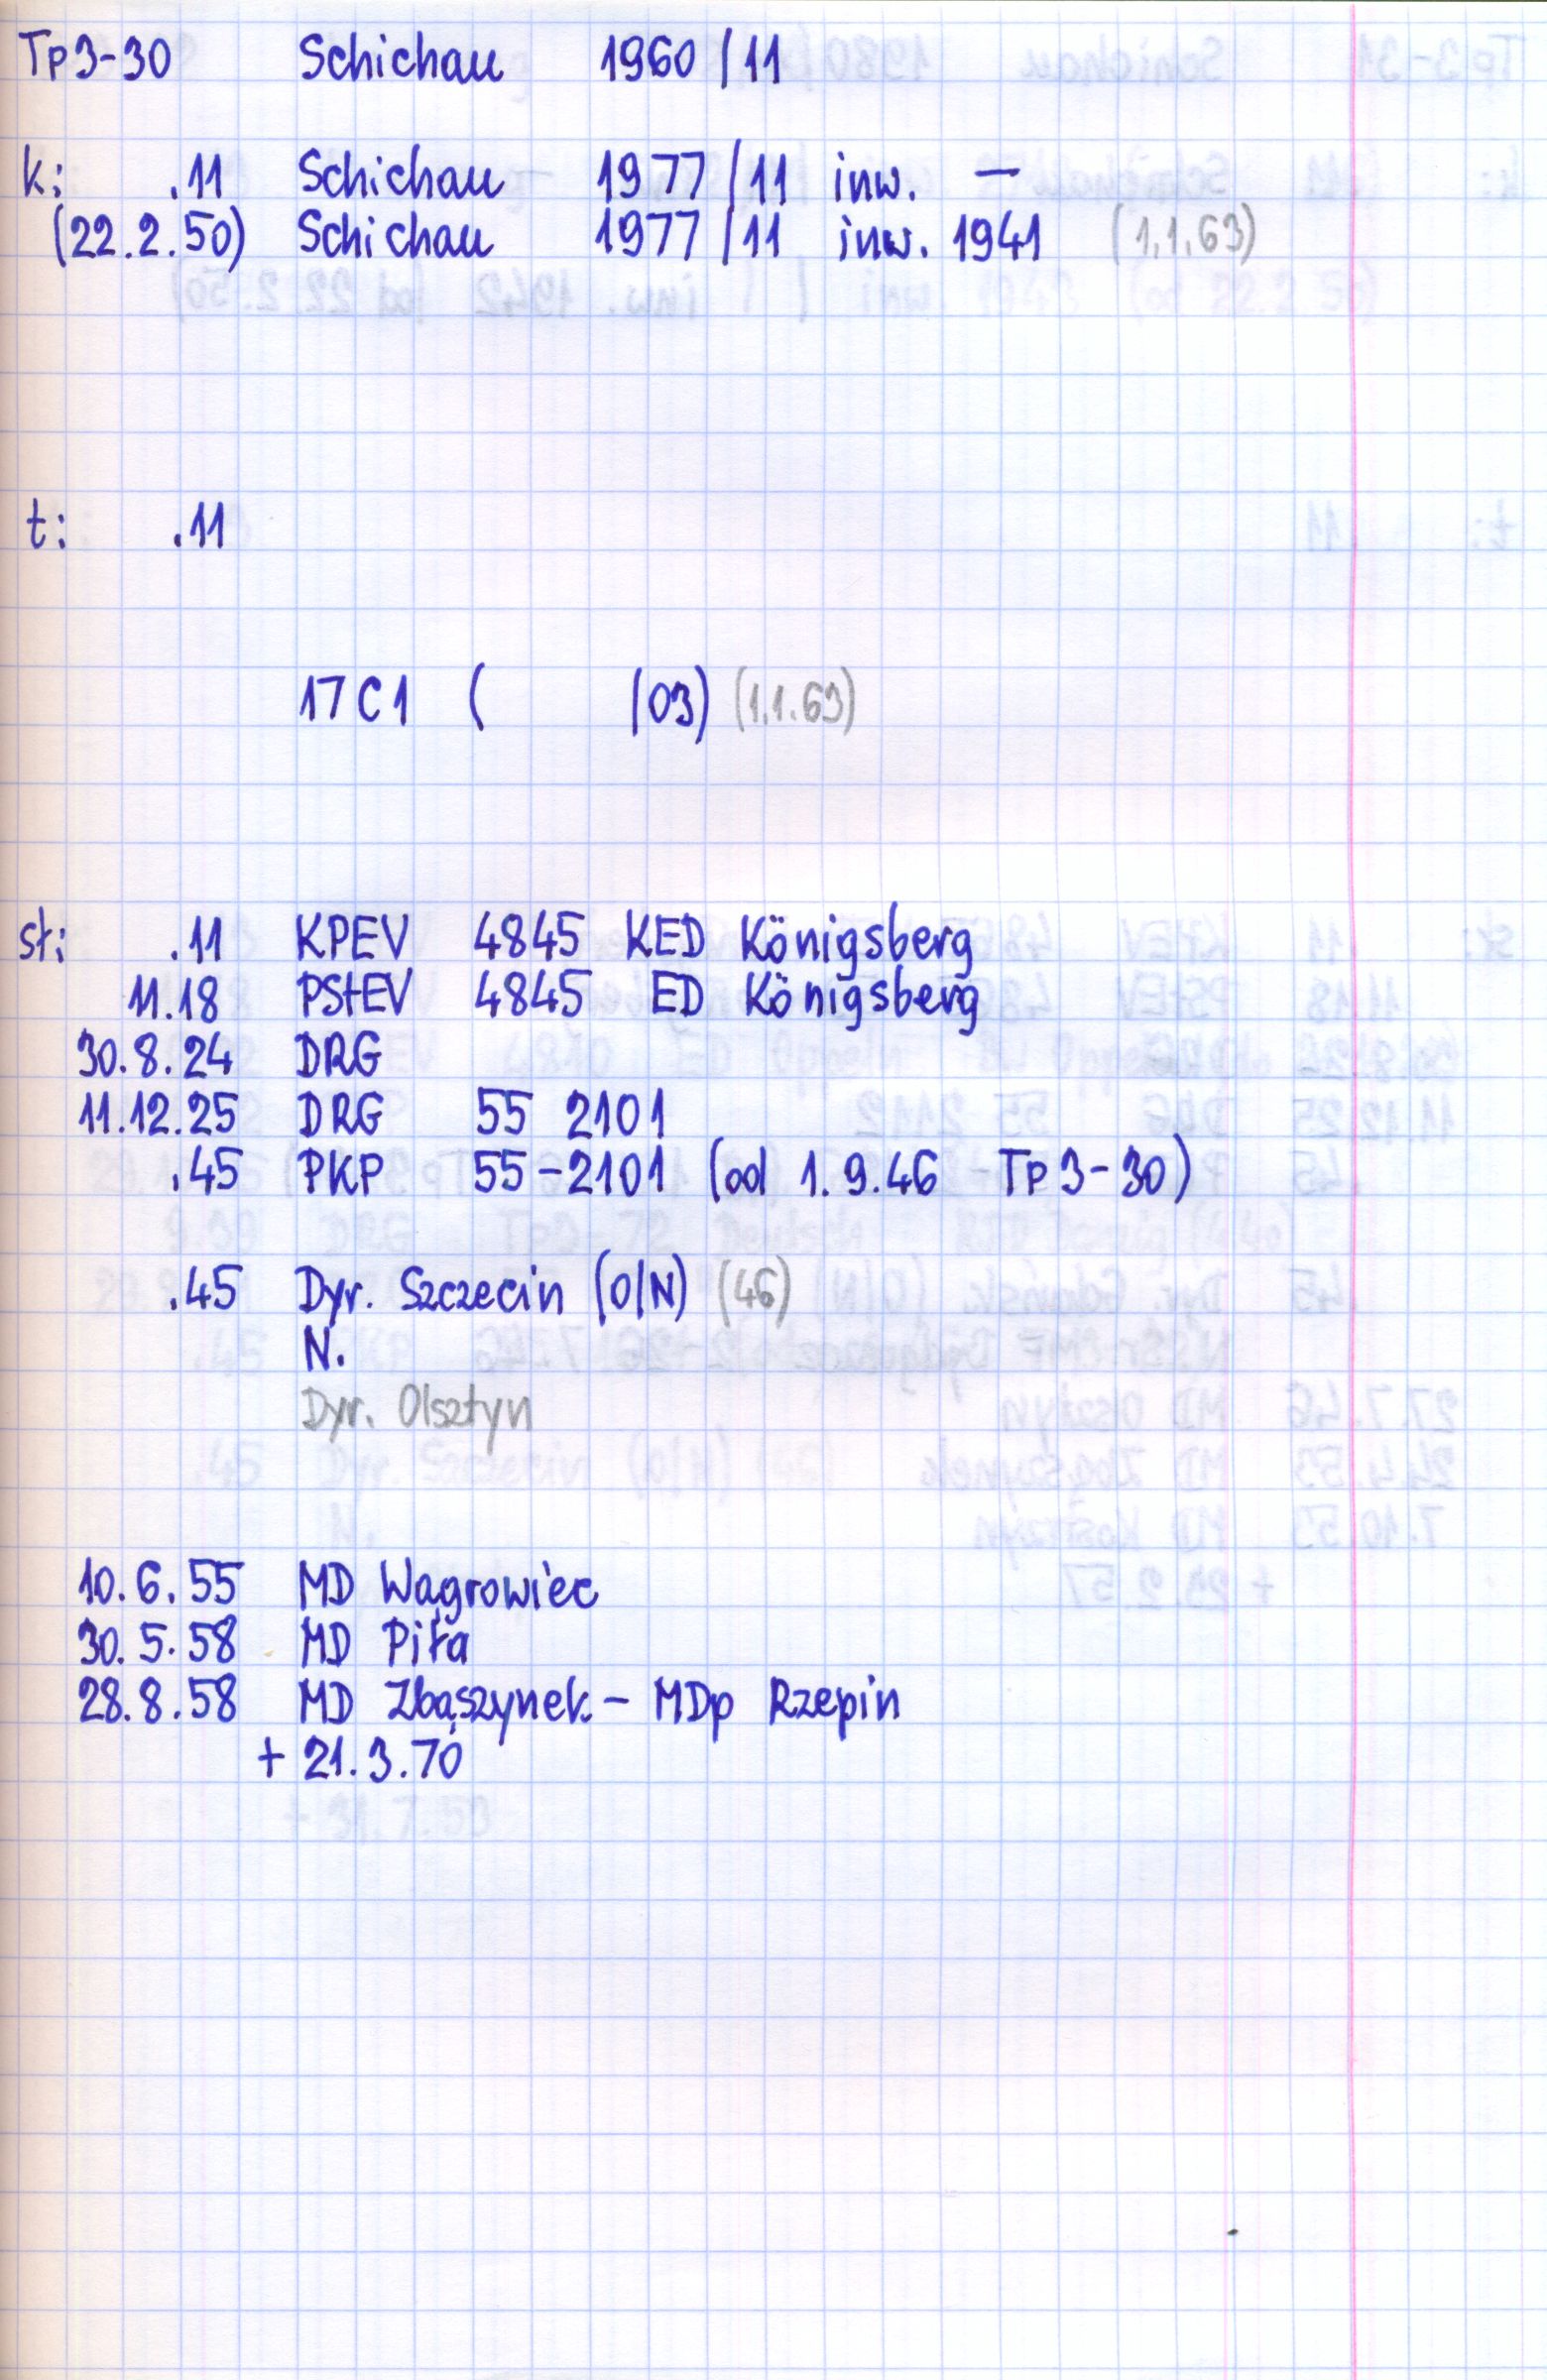 Tp3-30 Schichau 1960/11
k: .11 Schichau 1977/11 inw. —
(22.2.50) Schichau 1977/11 inw. 1941 (1.1.63)
t: .11
17C1 ( /03) (1.1.63)
st: .11 KPEV 4845 KED Königsberg
11.18 PStEV 4845 ED Königsberg
30.8.24 DRG
11.12.25 DRG 55 2101
.45 PKP 55-2101 (od 1.9.46 - Tp3-30)
.45 Dyr. Szczecin (O/N) (46)
N.
Dyr. Olsztyn
10.6.55 MD Wągrowiec
30.5.58 MD Piła
28.8.58 MD Zbąszynek - MDp Rzepin
+ 21.3.70